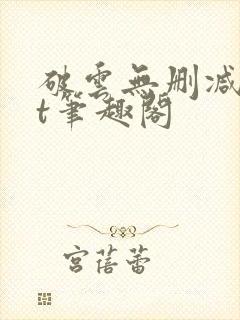 破雲無刪減
t筆趣閣
宮蓓蕾